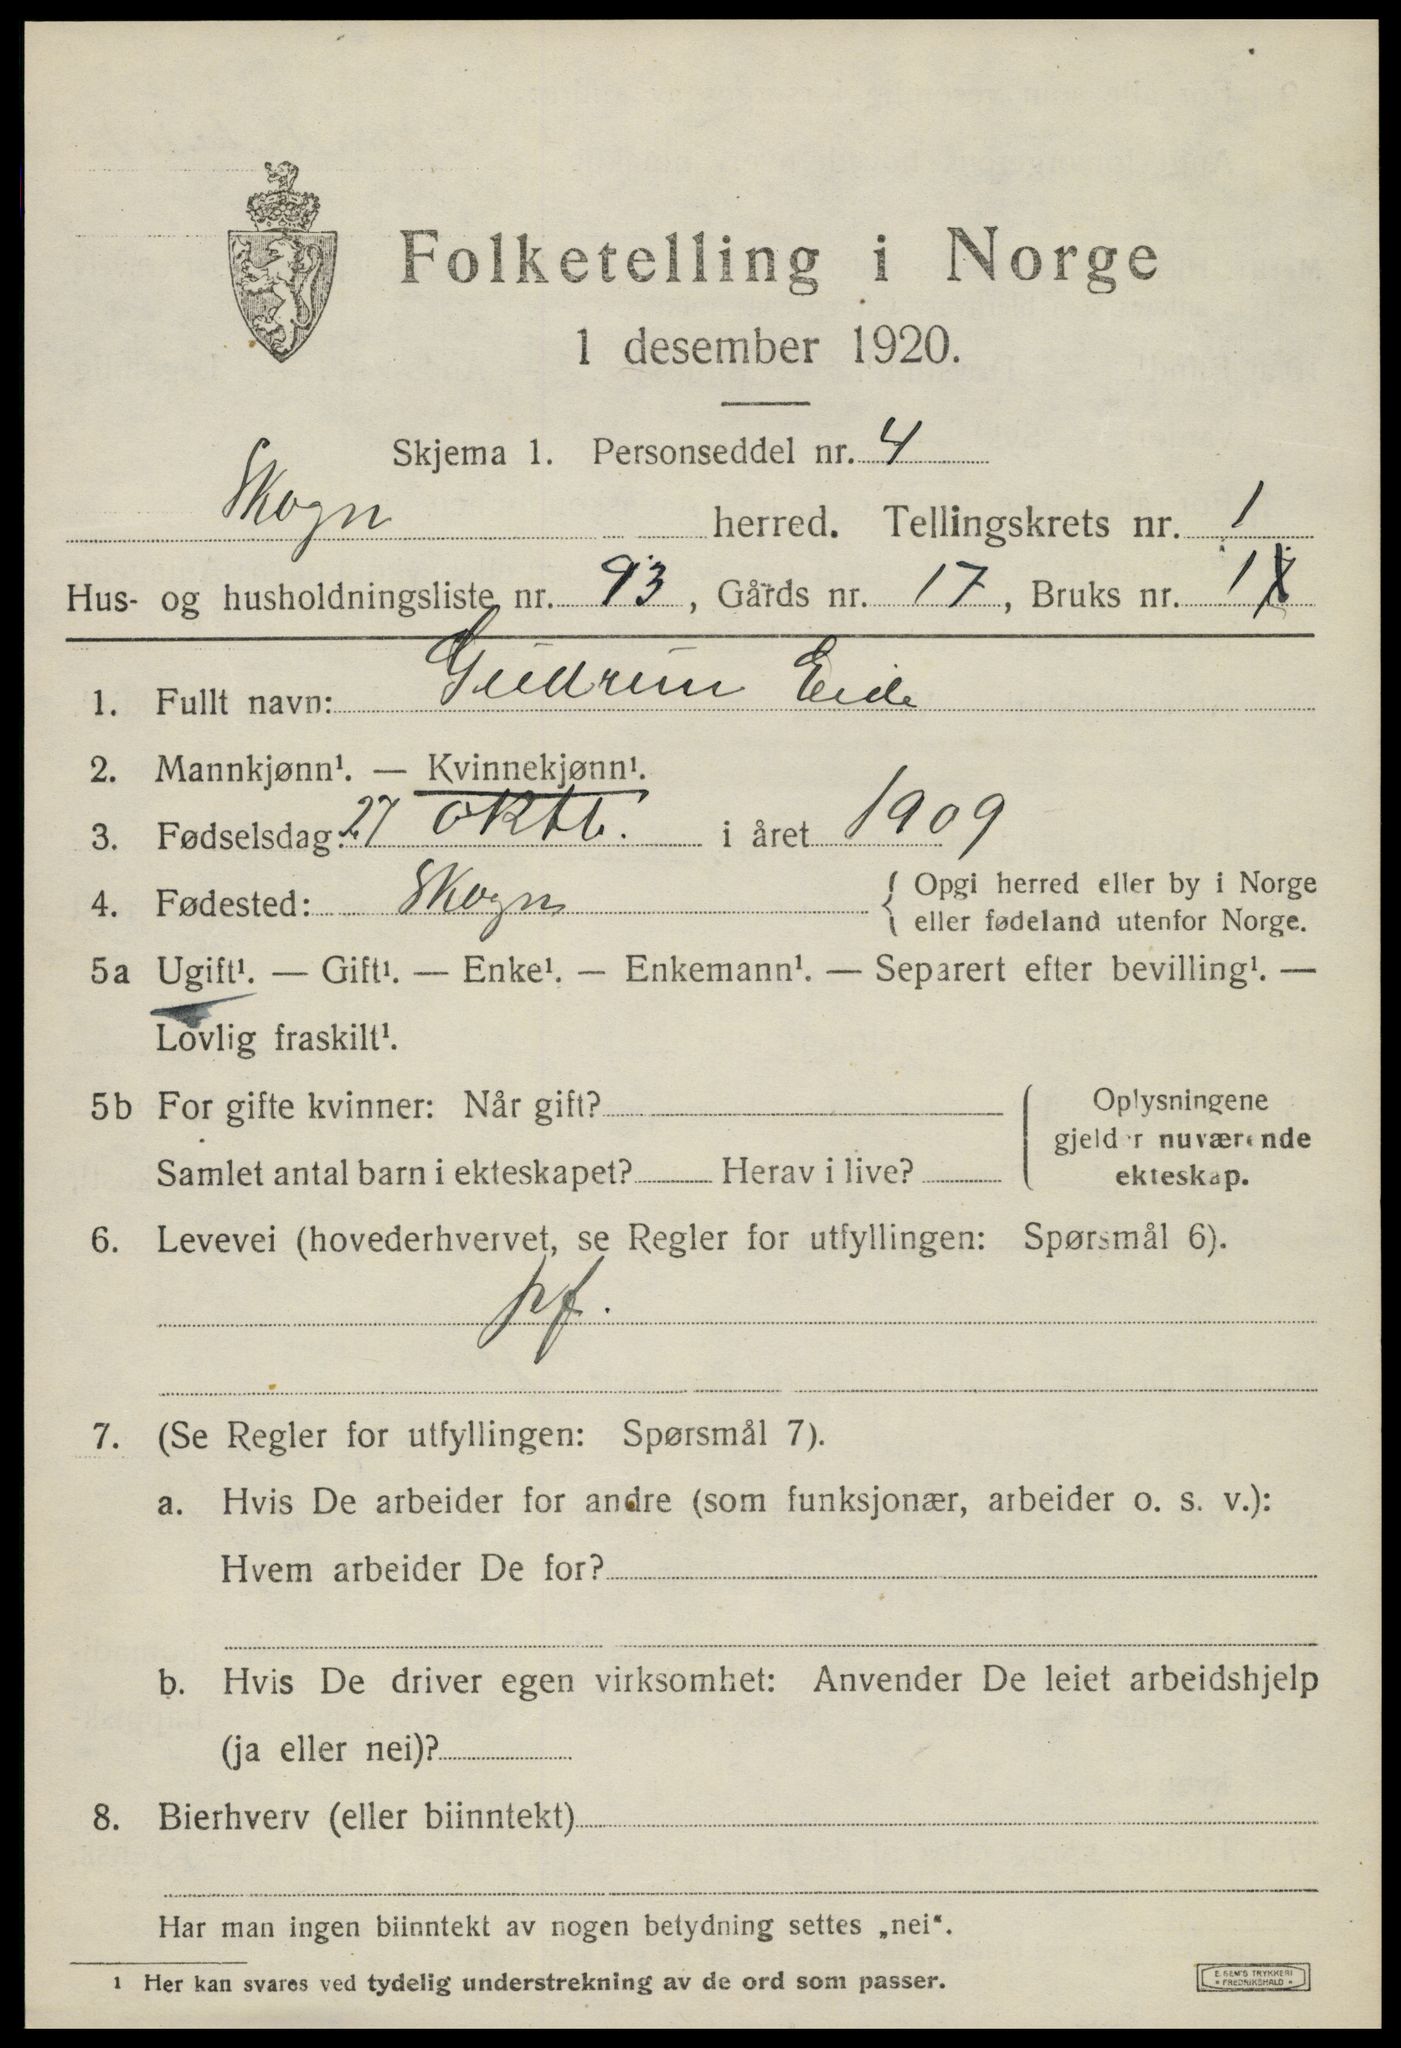 Folketelling i Norge
1 desember 1920.
Skjema 1. Personseddel nr. 4
Skogn herred. Tellingskrets nr. 1
Hus- og husholdningsliste nr. 93, Gårds nr. 17, Bruks nr. 1
1. Fullt navn: Gudrun Eide
2. Mannkjønn¹. — Kvinnekjønn¹.
3. Fødselsdag: 27 oktb. i året 1909
4. Fødested: Skogn { Opgi herred eller by i Norge
eller fødeland utenfor Norge.
5a Ugift¹. — Gift¹. — Enke¹. — Enkemann¹. — Separert efter bevilling¹. —
Lovlig fraskilt¹.
5b For gifte kvinner: Når gift?
Samlet antal barn i ekteskapet? Herav i live?
Oplysningene
gjelder nuværende
ekteskap.
6. Levevei (hovederhvervet, se Regler for utfyllingen: Spørsmål 6).
pf.
7. (Se Regler for utfyllingen: Spørsmål 7).
a. Hvis De arbeider for andre (som funksjonær, arbeider o. s. v.):
Hvem arbeider De for?
b. Hvis De driver egen virksomhet: Anvender De leiet arbeidshjelp
(ja eller nei)?
8. Bierhverv (eller biinntekt)
Har man ingen biinntekt av nogen betydning settes „nei“.
¹ Her kan svares ved tydelig understrekning av de ord som passer.
E. SEM'S TRYKKERI
• FREDRIKSHALD •